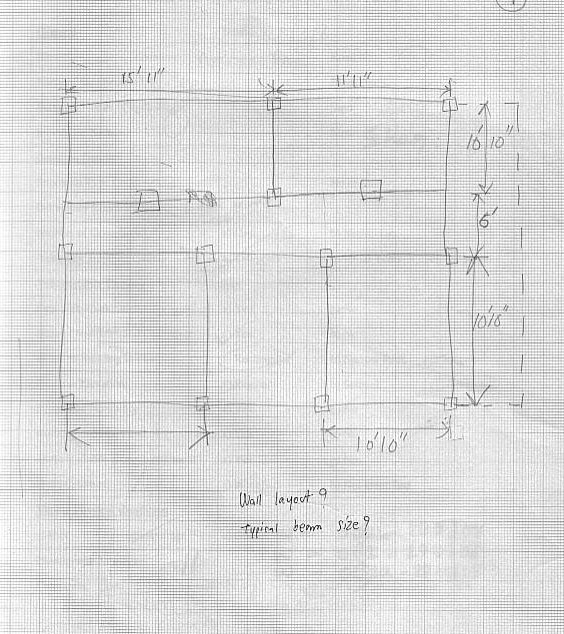 15' 11"
11' 11"
10' 10"
6'
10'10"
10'10"
Wall layout?
Typical beam size?